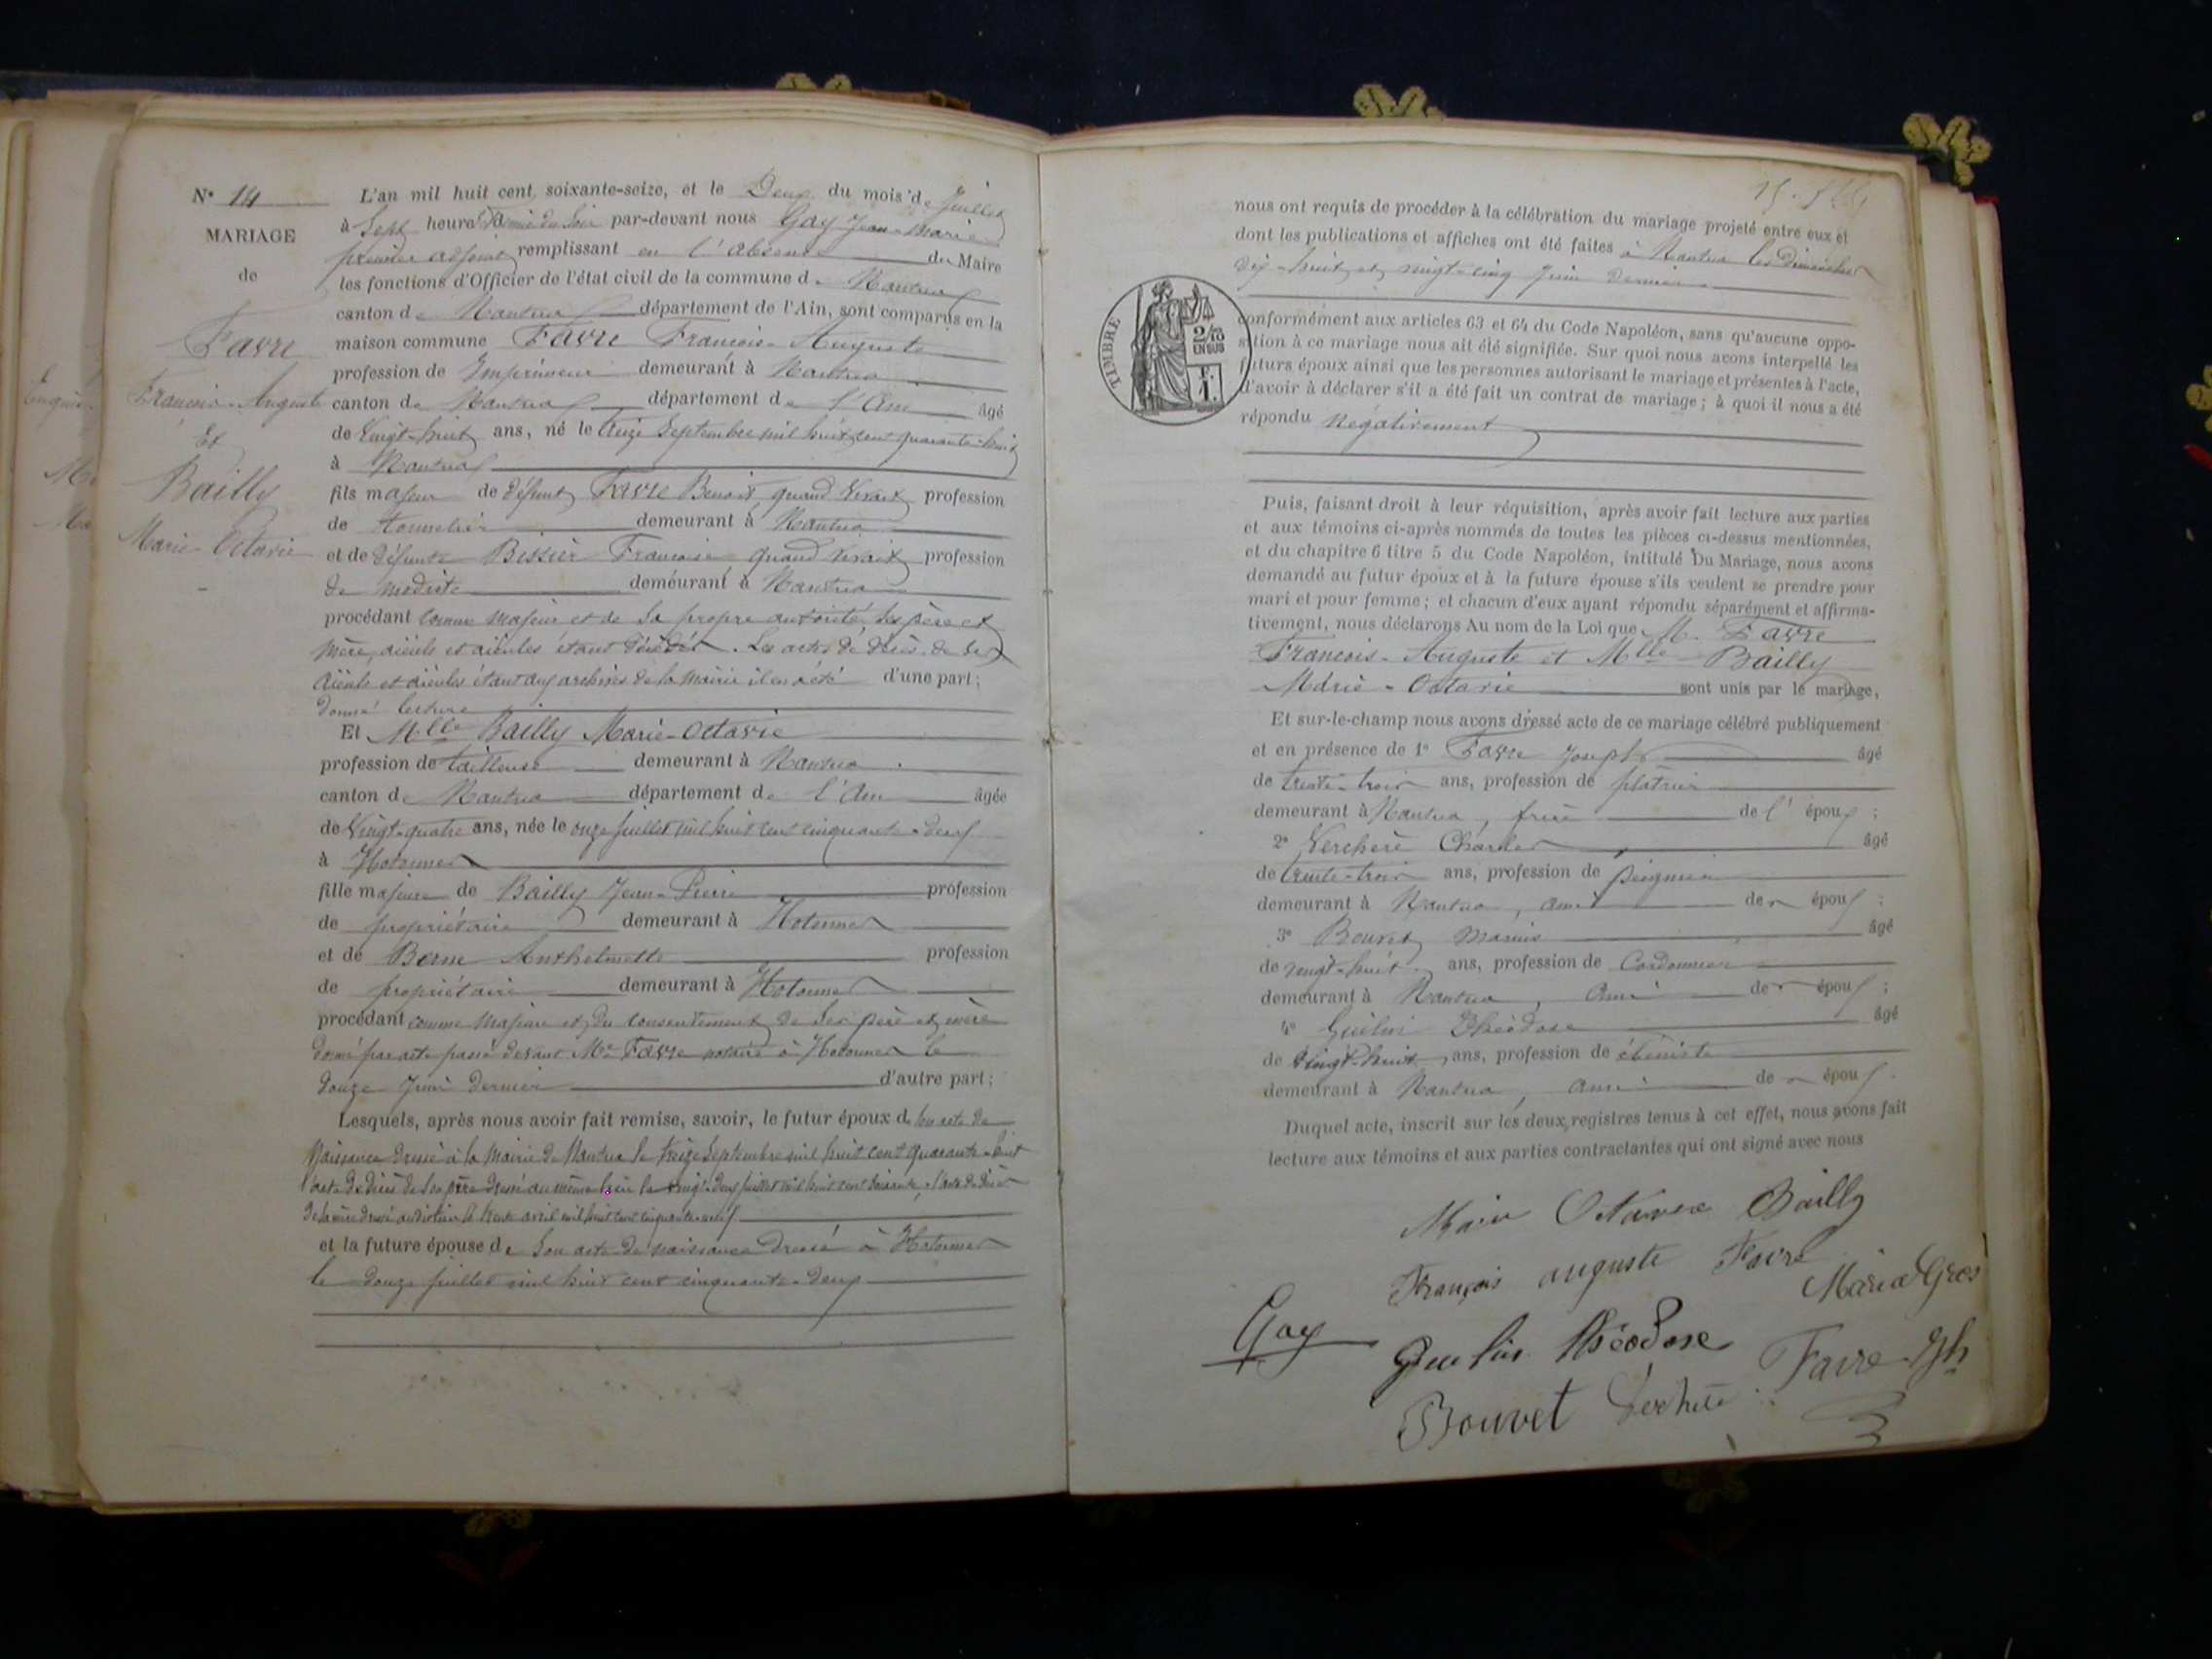 N° 14
MARIAGE
de
Favre
François-Auguste
Et
Bailly
Marie-Octavie
L'an mil huit cent soixante-seize, et le Deux du mois de Juillet
à Sept heures & demie du soir par-devant nous Gay Jean-Marie
premier adjoint remplissant en l'absence du Maire
les fonctions d'Officier de l'état civil de la commune de Nantua
canton de Nantua département de l'Ain, sont comparus en la
maison commune Favre François-Auguste
profession de Imprimeur demeurant à Nantua
canton de Nantua département de l'Ain âgé
de Vingt-huit ans, né le septembre mil huit cent quarante-huit
à Nantua
fils majeur de défunt Favre Benoit quand vivait profession
de tonnelier demeurant à Nantua
et de défunte Bissier Françoise quand vivait profession
de modiste demeurant à Nantua
procédant comme majeur et de sa propre autorité, ses père et
mère, aïeuls et aïeules étant décédés. Les actes de décès de ses
aïeuls et aïeules étant aux archives de la Mairie il en a été d'une part;
donné lecture
Et Mlle Bailly Marie-Octavie
profession de tailleuse demeurant à Nantua
canton de Nantua département de l'Ain âgée
de Vingt-quatre ans, née le onze juillet mil huit cent cinquante-deux
à Hotonnes
fille majeure de Bailly Jean-Pierre profession
de propriétaire demeurant à Hotonnes
et de Berne Anthelmette profession
de propriétaire demeurant à Hotonnes
procédant comme majeure et du consentement de ses père et mère
donné par acte passé devant Me Favre notaire à Hotonnes le
douze Juin dernier d'autre part;
Lesquels, après nous avoir fait remise, savoir, le futur époux de son acte de
Naissance dressé à la Mairie de Nantua le treize Septembre mil huit cent quarante-huit
l'acte de décès de son père dressé au même lieu le vingt-deux juillet mil huit cent soixante, l'acte de décès
de sa mère dressé au dit lieu le trente avril mil huit cent cinquante-neuf
et la future épouse de son acte de naissance dressé à Hotonnes
le douze juillet mil huit cent cinquante-deux
nous ont requis de procéder à la célébration du mariage projeté entre eux et
dont les publications et affiches ont été faites à Nantua les dimanches
dix-huit et vingt-cinq Juin dernier
TIMBRE
2/10
EN SUS
F.
1.
conformément aux articles 63 et 64 du Code Napoléon, sans qu'aucune oppo-
sition à ce mariage nous ait été signifiée. Sur quoi nous avons interpellé les
futurs époux ainsi que les personnes autorisant le mariage et présentes à l'acte,
d'avoir à déclarer s'il a été fait un contrat de mariage; à quoi il nous a été
répondu Négativement
Puis, faisant droit à leur réquisition, après avoir fait lecture aux parties
et aux témoins ci-après nommés de toutes les pièces ci-dessus mentionnées,
et du chapitre 6 titre 5 du Code Napoléon, intitulé Du Mariage, nous avons
demandé au futur époux et à la future épouse s'ils veulent se prendre pour
mari et pour femme; et chacun d'eux ayant répondu séparément et affirma-
tivement, nous déclarons Au nom de la Loi que M. Favre
François-Auguste et Mlle Bailly
Marie-Octavie sont unis par le mariage,
Et sur-le-champ nous avons dressé acte de ce mariage célébré publiquement
et en présence de 1° Favre Joseph âgé
de trente-trois ans, profession de plâtrier
demeurant à Nantua, frère de l'époux;
2° Verchère Charles âgé
de trente-trois ans, profession de peignier
demeurant à Nantua, ami des époux;
3° Bouvet Marius âgé
de vingt-huit ans, profession de Cordonnier
demeurant à Nantua, ami des époux;
4° Guélin Théodose âgé
de vingt-huit ans, profession de ébéniste
demeurant à Nantua, ami des époux
Duquel acte, inscrit sur les deux registres tenus à cet effet, nous avons fait
lecture aux témoins et aux parties contractantes qui ont signé avec nous
Marie Octavie Bailly
François auguste Favre
Maria Gros
Gay
Guelin Théodose
Favre Jph
Bouvet Verchère